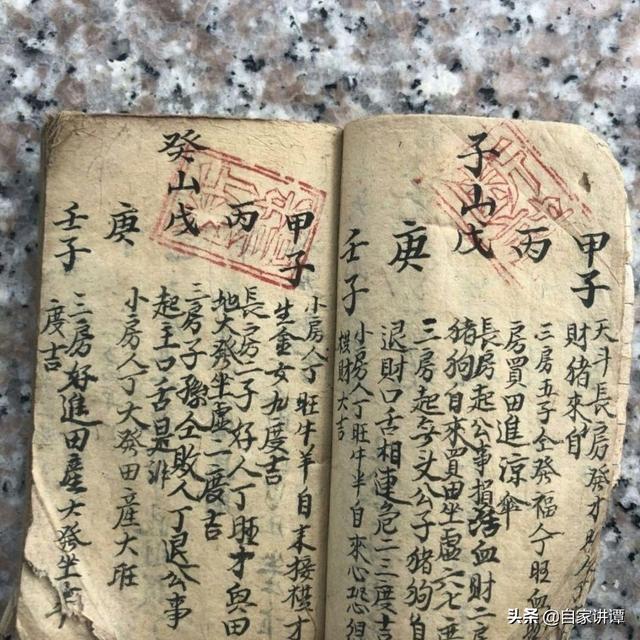 子山
甲子
天斗長房發才
財猪來自
丙
三房五子全發福人丁旺血
房買田進涼傘
戊
長房起公事損血財二房
猪狗自來買田坐虛六七度
庚
三房起头公子猪狗自
退財口舌相連危一二三度吉
壬子
小房人丁旺牛羊自來心恐
横財大吉
癸山
甲子
小房人丁旺牛羊自来接横才
生金女九度吉
丙
長房一子好人丁旺才與田
地大發坐虛一度吉
戊
二房子孫仝敗人丁退公事
起主口舌是非
庚
小房人丁大發田產大旺
壬子
三房好進田產大發坐
度吉
头条 @自家讲谭